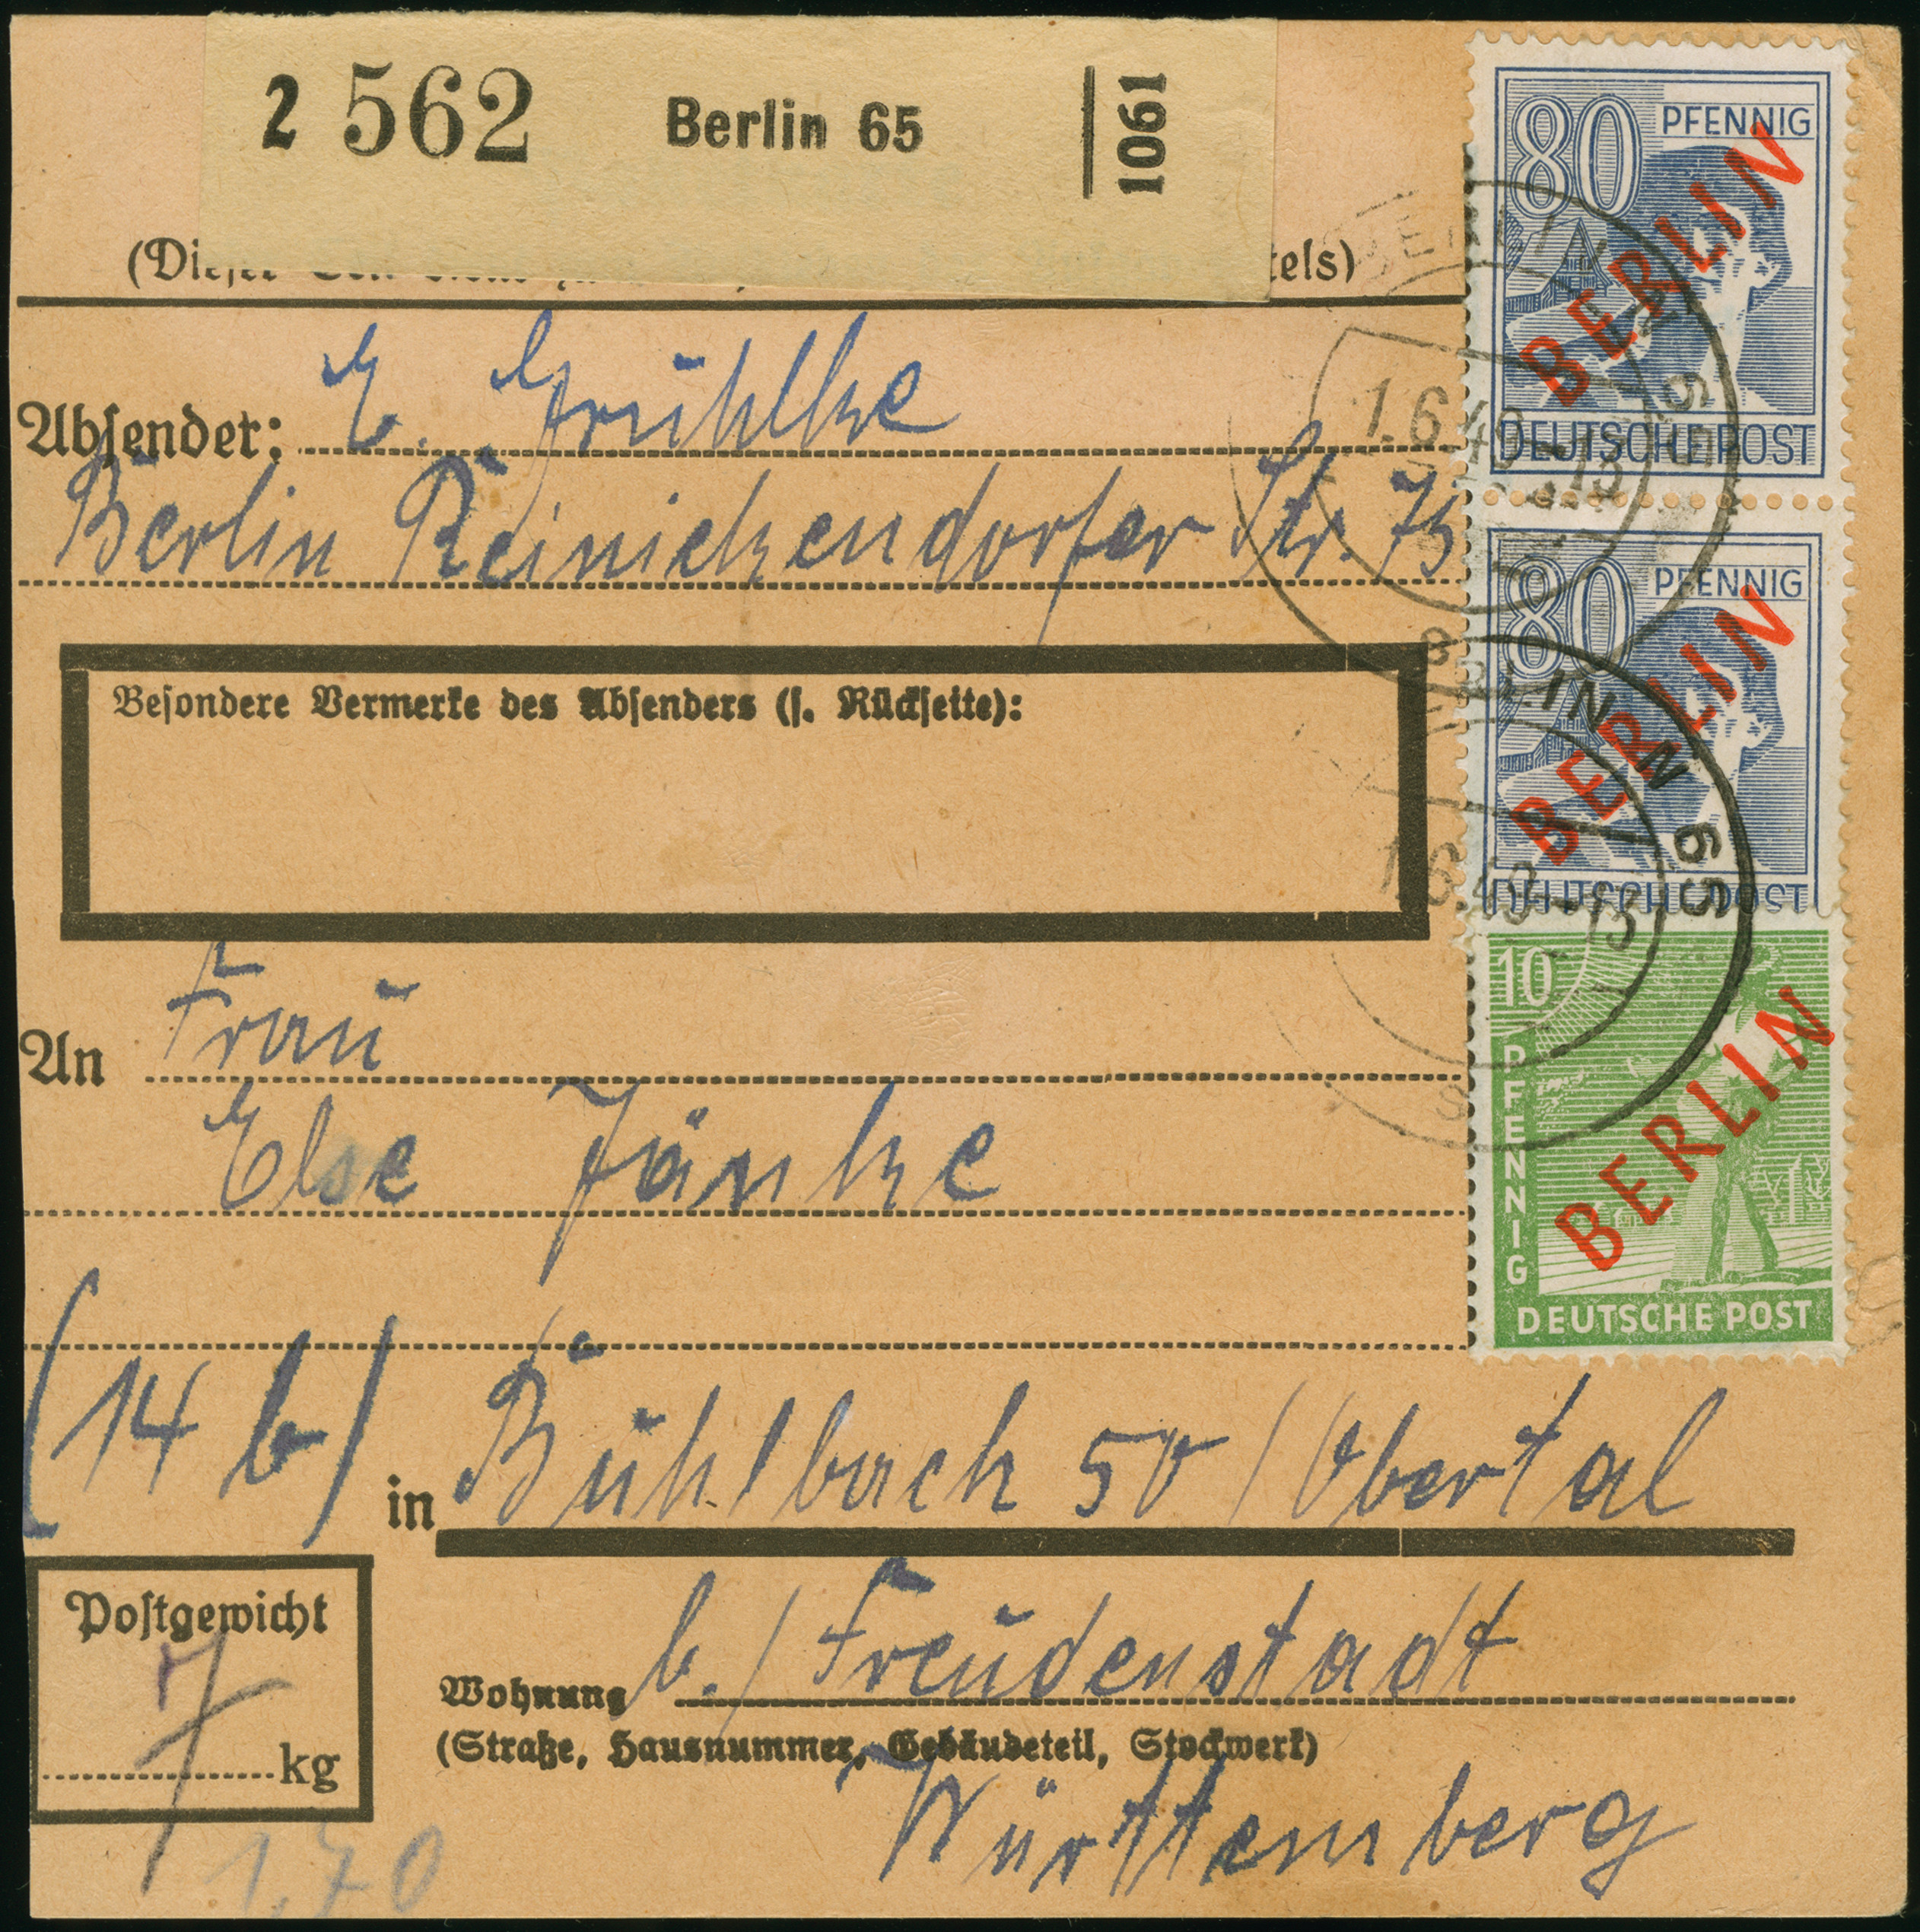 2 562 Berlin 65 1061
(Dieser tels)
Absender: E. Grühlke
Berlin Reinickendorfer Str. 75
Besondere Vermerke des Absenders (s. Rückseite):
An Frau
Else Jänke
(14 b) in Bühlbach 50 / Obertal
Postgewicht
7 kg
1,70
Wohnung b./ Freudenstadt
(Straße, Hausnummer, Gebäudeteil, Stockwerk)
Württemberg
80 PFENNIG
BERLIN
DEUTSCHE POST
80 PFENNIG
BERLIN
DEUTSCHE POST
10 PFENNIG
BERLIN
DEUTSCHE POST
BERLIN N 65
1.6.49.-13
BERLIN N 65
1.6.49.-13